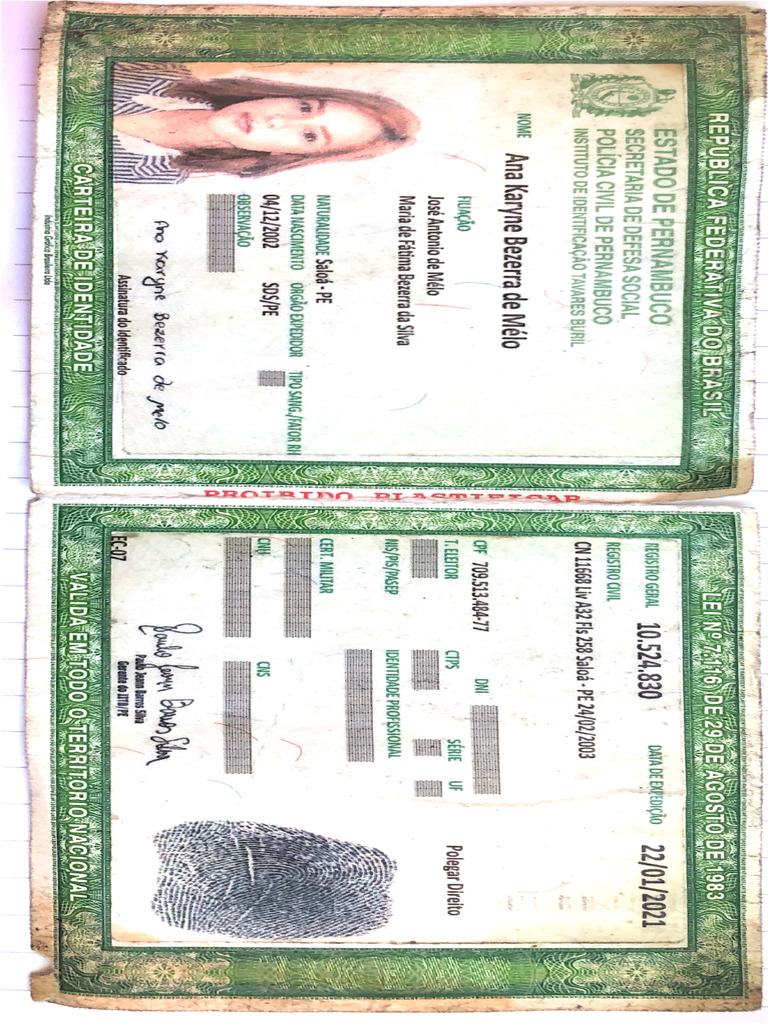 REPÚBLICA FEDERATIVA DO BRASIL
ESTADO DE PERNAMBUCO
SECRETARIA DE DEFESA SOCIAL
POLÍCIA CIVIL DE PERNAMBUCO
INSTITUTO DE IDENTIFICAÇÃO TAVARES BURIL
NOME Ana Karyne Bezerra de Mélo
FILIAÇÃO
José Antonio de Mélo
Maria de Fátima Bezerra da Silva
NATURALIDADE Saloá - PE
DATA NASCIMENTO ORGÃO EXPEDIDOR TIPO SANG./FATOR RH
04/12/2002 SDS/PE
OBSERVAÇÃO
Ana Karyne Bezerra de Melo
Assinatura do Identificado
CARTEIRA DE IDENTIDADE
PROIBIDO PLASTIFICAR
LEI Nº 7.116, DE 29 DE AGOSTO DE 1983
REGISTRO GERAL 10.524.830 DATA DE EXPEDIÇÃO 22/01/2021
REGISTRO CIVIL
CN 11668 Liv A32 Fls 258 Saloá - PE 24/02/2003
CPF 709.513.484-77 DNI
T. ELEITOR CTPS SÉRIE UF
Polegar Direito
NIS/PIS/PASEP IDENTIDADE PROFISSIONAL
CERT. MILITAR
CNH CNS
Gerente do IITB/PE
EC-07
VÁLIDA EM TODO O TERRITÓRIO NACIONAL